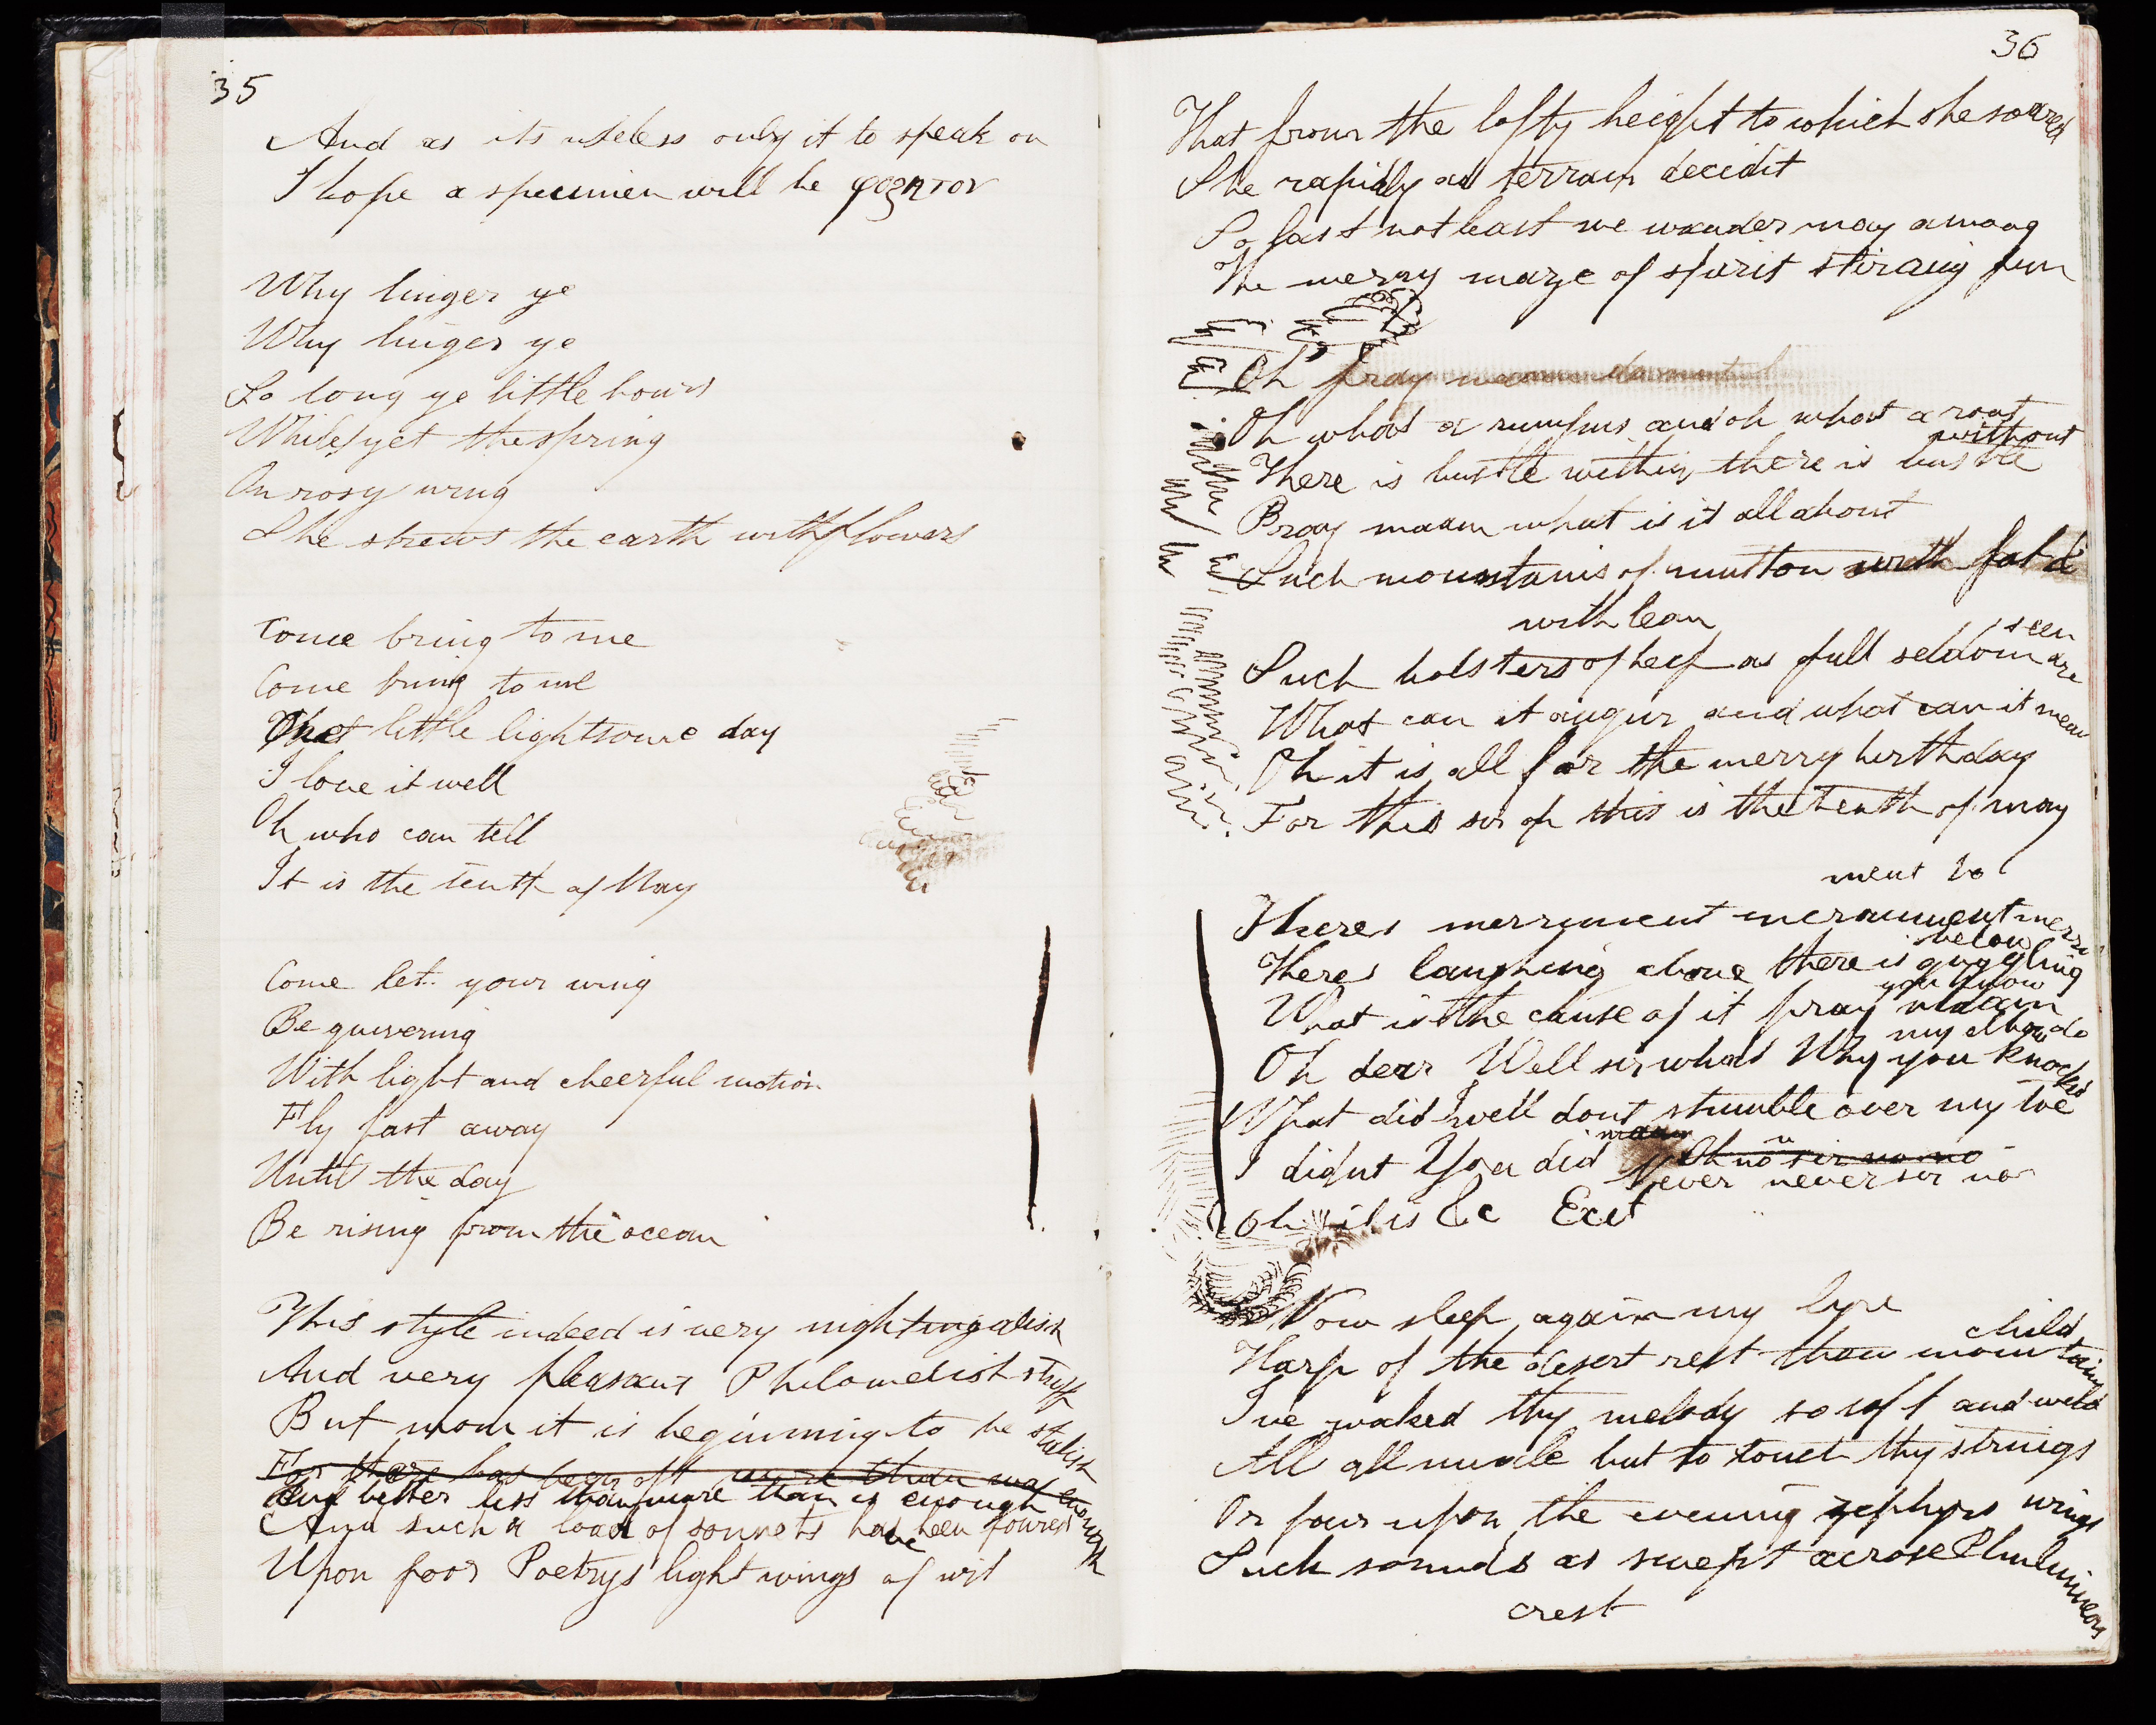 35
And as its useless only it to speak on
I hope a specimen will be
Why linger ye
Why linger ye
So long ye little hours
While yet the spring
On rosy wing
She strews the earth with flowers
Come bring to me
Come bring to me
That little lightsome day
I love it well
Oh who can tell
It is the tenth of May
Come let your wing
Be quivering
With light and cheerful motion
Fly fast away
Until the day
Be rising from the ocean
This style indeed is very nightingalish
And very pleasant Philomelish stuff
But mom it is beginning to be stalish
For there has been oft more than was enough
And better less than more than is enough
And such a load of sonnets have been poured
Upon poor Poetrys light wings of wit
36
That from the lofty height to which she soared
She rapidly ad terram decidit
So last not least we wander may among
The merry maze of spirit stiraing fun
Oh pray
Oh what a rumpus and oh what a rout
There is bustle within there is bustle without
Pray maam what is it all about
Such mountains of mutton with fat &
with lean
Such bolsters of beef as full seldom are seen
What can it augur and what can it mean
Oh it is all for the merry birthday
For this sir oh this is the tenth of may
Theres merriment merriment merri
ment ho
Theres laughing above there is giggling below
What is the cause of it pray maam you know
Oh dear Well sir whats Why you knocked my elbow do
What did I well dont stumble over my toe
I didnt You did maam Oh no sir no no
Never never sir no
Oh it is &c Exit
Now sleep again my lyre
Harp of the desert rest thou mountain child
Ive waked thy melody so soft and wild
All all unable but to touch thy strings
Or pour upon the evening zephyrs wings
Such sounds as swept across Plinlimmons
crest